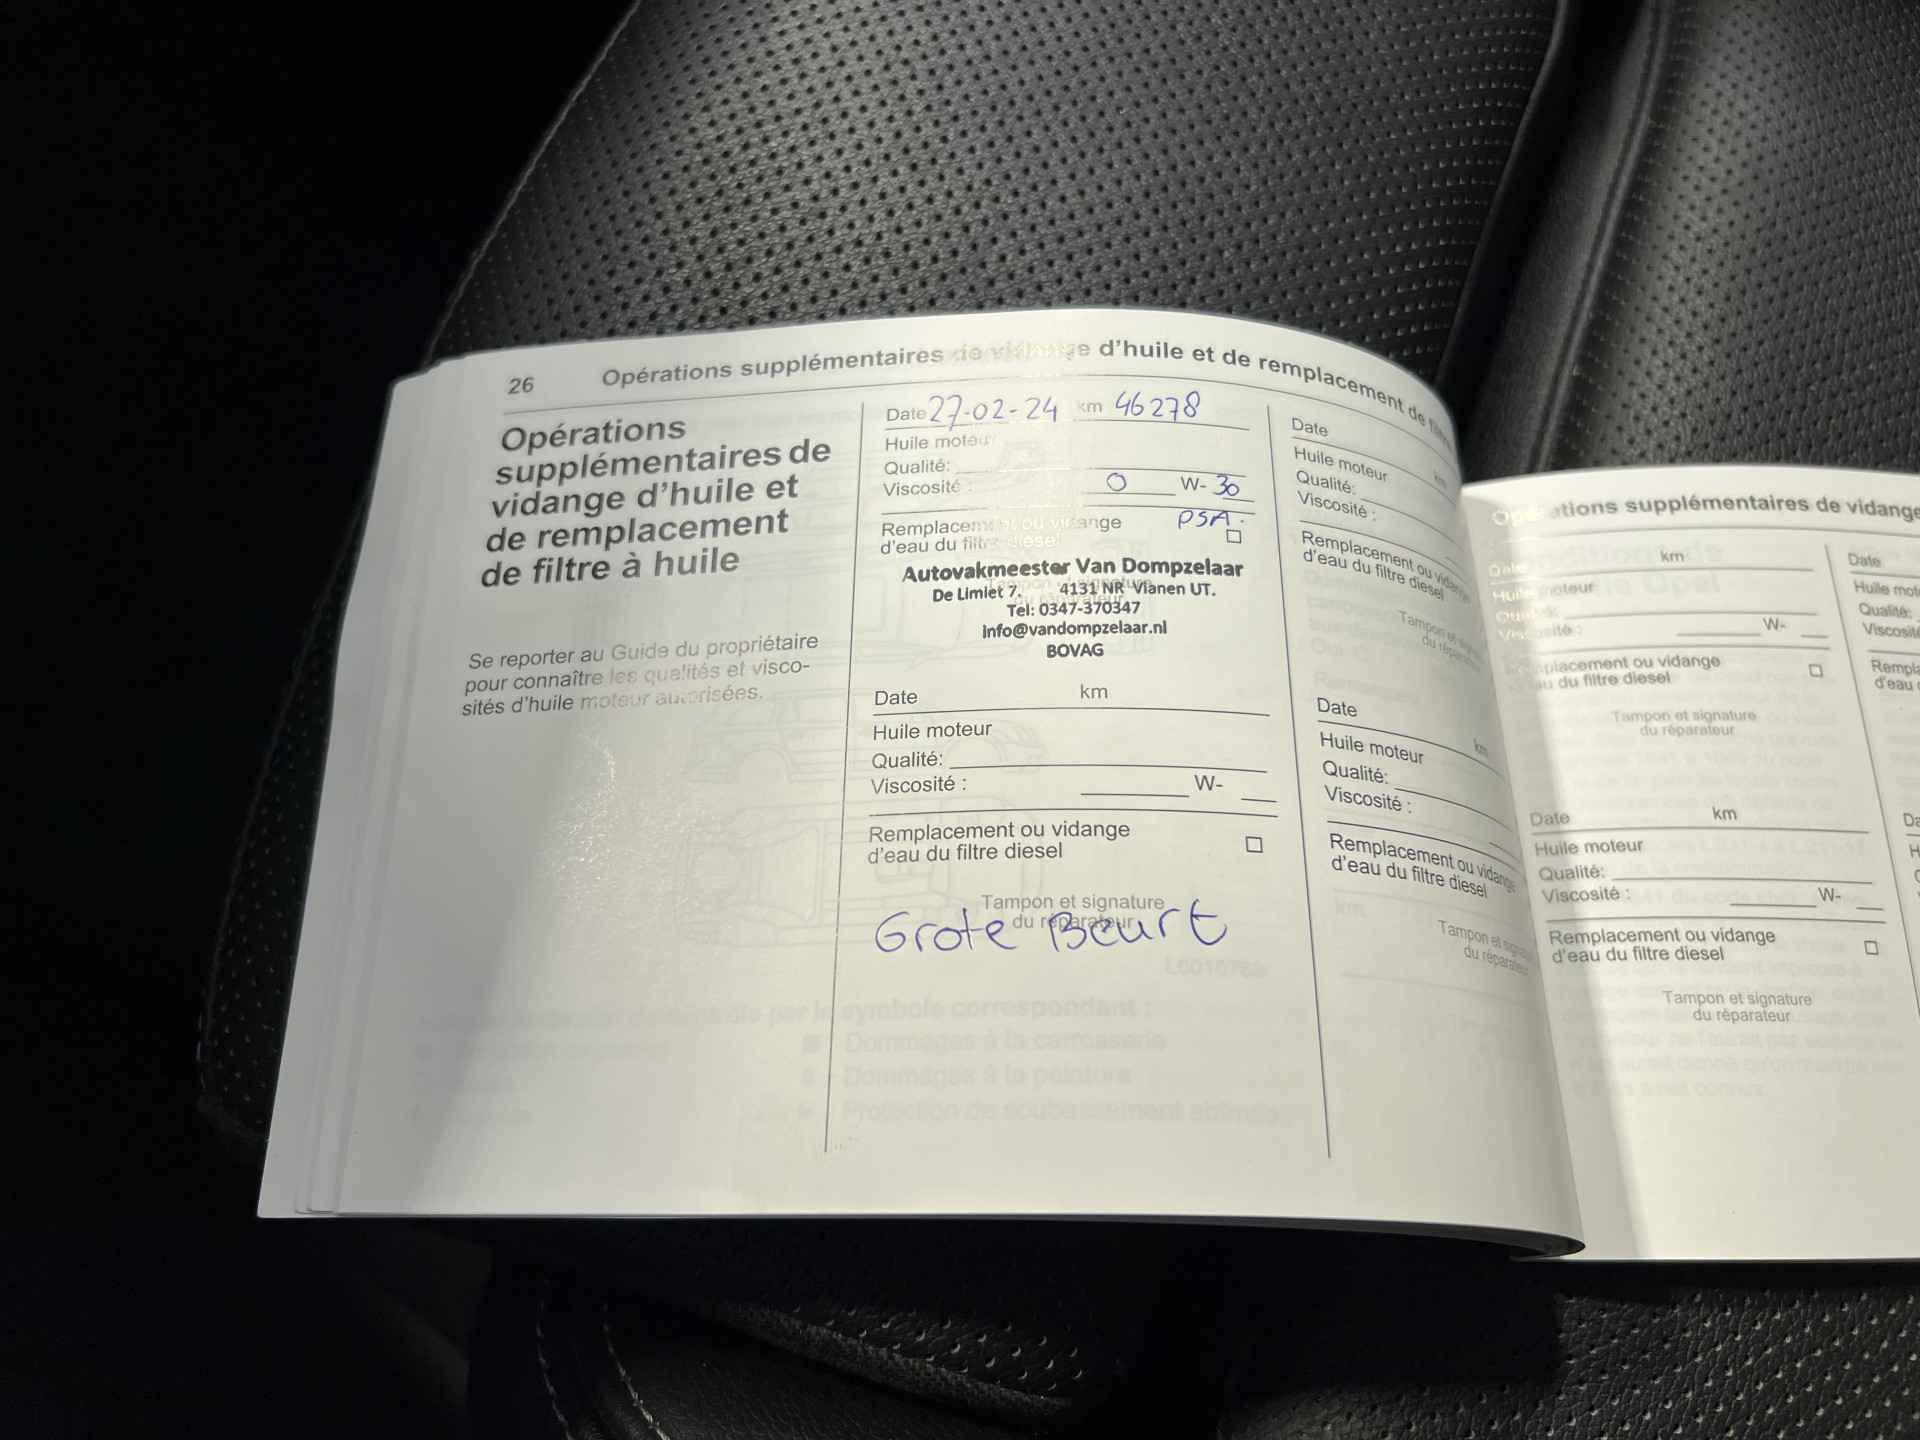 26
Opérations supplémentaires de vidange d'huile et de remplacement de filtre
Opérations
supplémentaires de
vidange d'huile et
de remplacement
de filtre à huile
Se reporter au Guide du propriétaire
pour connaître les qualités et visco-
sités d'huile moteur autorisées.
Date 27-02-24 km 46278
Huile moteur
Qualité:
Viscosité : 0 W- 30
PSA.
Remplacement ou vidange
d'eau du filtre diesel
Tampon et signature
du réparateur
Autovakmeester Van Dompzelaar
De Limiet 7. 4131 NR Vianen UT.
Tel: 0347-370347
info@vandompzelaar.nl
BOVAG
Date km
Huile moteur
Qualité:
Viscosité : W-
Remplacement ou vidange
d'eau du filtre diesel
Tampon et signature
du réparateur
Grote Beurt
Date km
Huile moteur
Qualité:
Viscosité :
Remplacement ou vidange
d'eau du filtre diesel
Tampon et
du réparateur
Date km
Huile moteur
Qualité:
Viscosité :
Remplacement ou vidange
d'eau du filtre diesel
Tampon et
du réparateur
Opérations supplémentaires de vidange
Date km
Huile moteur
Qualité:
Viscosité : W-
Remplacement ou vidange
d'eau du filtre diesel
Tampon et signature
du réparateur
Date km
Huile moteur
Qualité:
Viscosité : W-
Remplacement ou vidange
d'eau du filtre diesel
Tampon et signature
du réparateur
Date
Huile
Qualité: